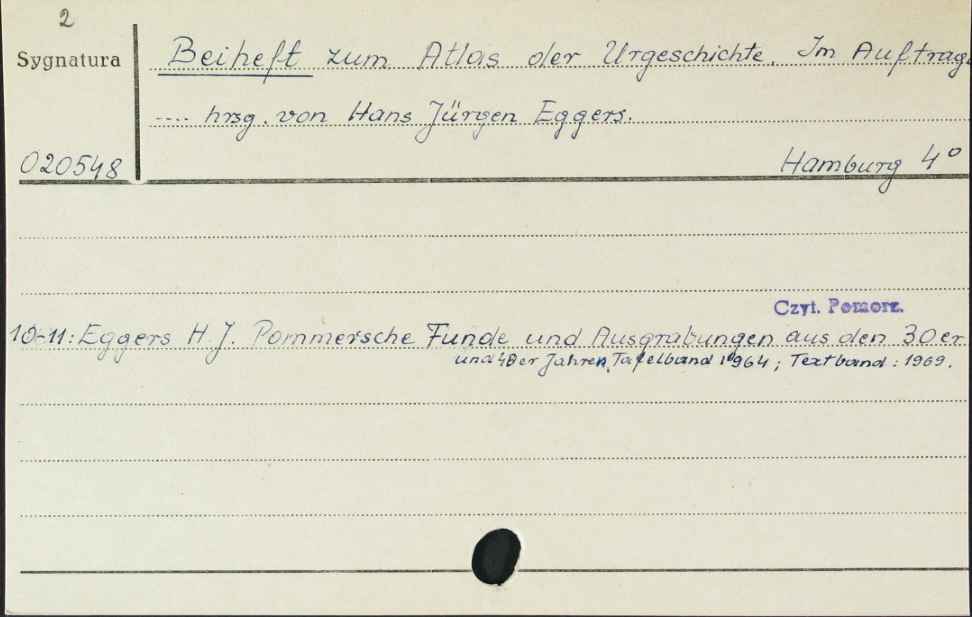 2
Sygnatura
Beiheft zum Atlas der Urgeschichte. Im Auftrage
.... hrsg. von Hans Jürgen Eggers.
020548
Hamburg 4°
Czyt. Pomorz.
10-11: Eggers H. J. Pommersche Funde und Ausgrabungen aus den 30er
und 40er Jahren, Tafelband 1964; Textband: 1969.